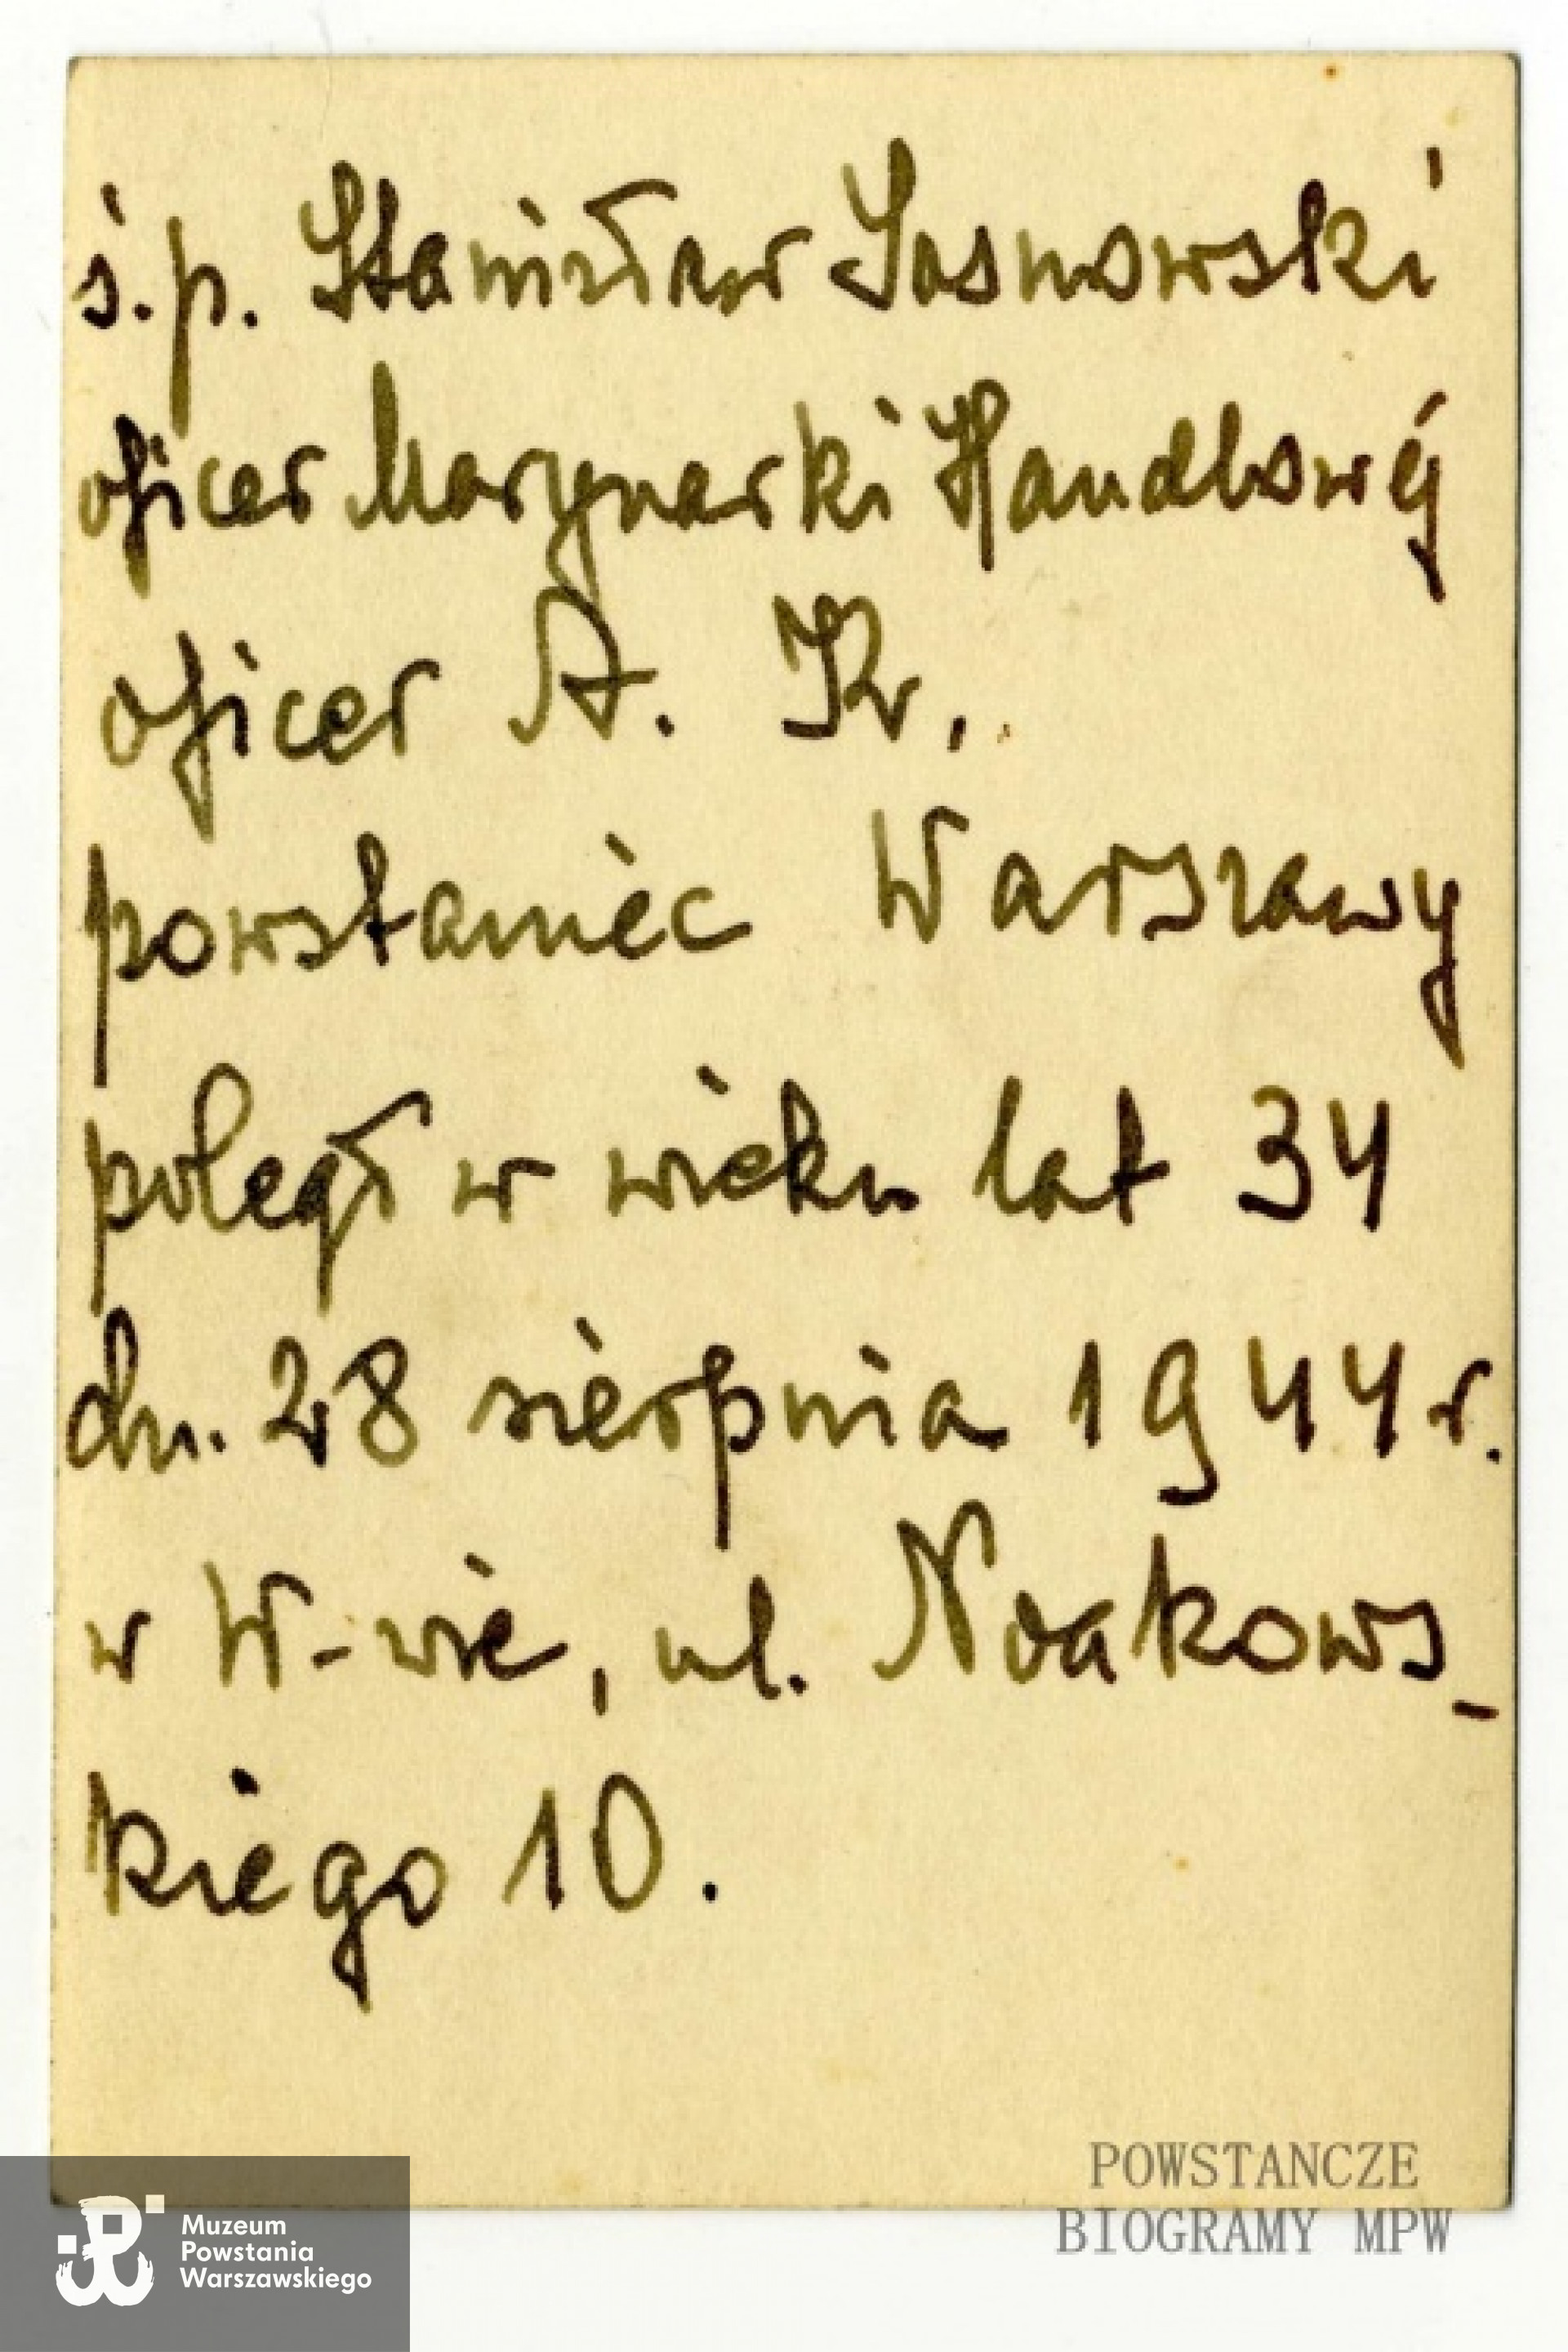 ś.p. Stanisław Sosnowski
oficer Marynarki Handlowej
oficer A. Kr.
powstaniec Warszawy
poległ w wieku lat 34
dn. 28 sierpnia 1944 r.
w W-wie, ul. Noakows-
kiego 10.
POWSTANCZE
BIOGRAMY MPW
Muzeum
Powstania
Warszawskiego